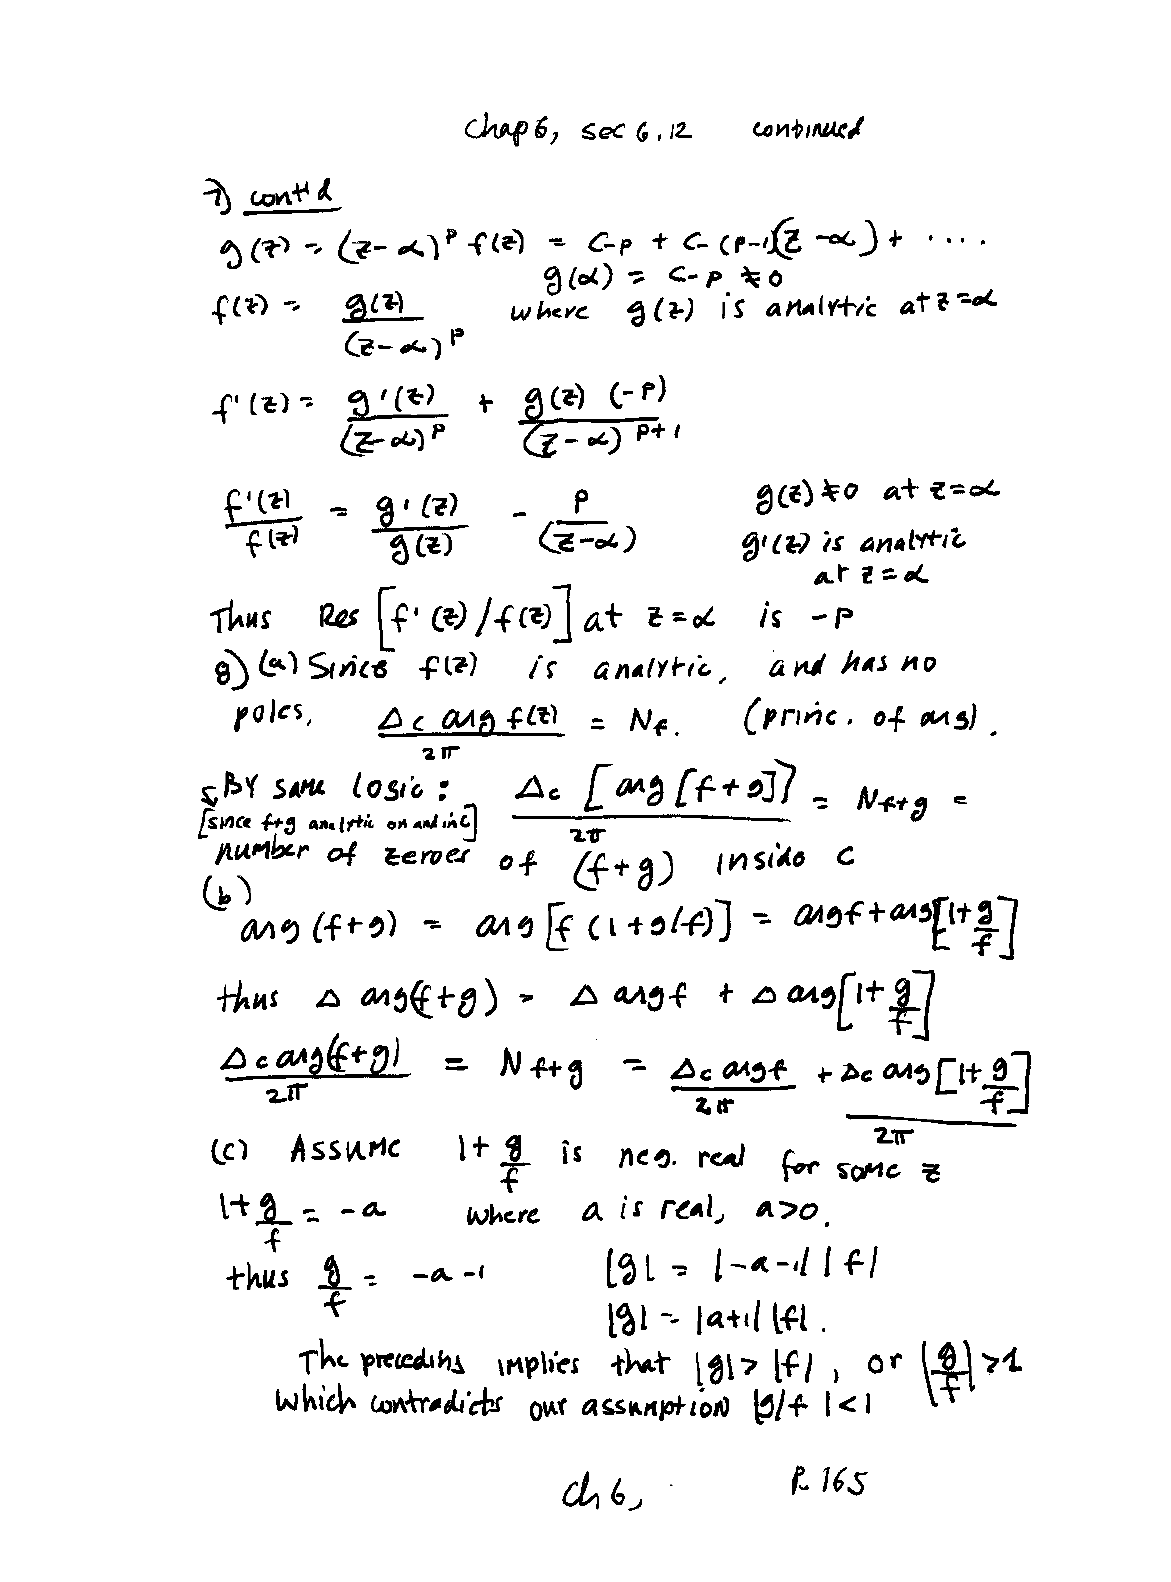 Chap 6, sec 6.12 continued
7) cont'd
g(z) = (z-α)^p f(z) = c-p + c-(p-1)(z-α) + ....
g(α) = c-p ≠ 0
f(z) = g(z)/(z-α)^p where g(z) is analytic at z=α
f'(z) = g'(z)/(z-α)^p + g(z) (-p)/(z-α)^p+1
f'(z)/f(z) = g'(z)/g(z) - p/(z-α) g(z) ≠ 0 at z=α
g'(z) is analytic
at z=α
Thus Res [f'(z)/f(z)] at z=α is -p
8) (a) Since f(z) is analytic, and has no
poles, Δc arg f(z)/2π = Nf. (princ. of arg).
By same logic: Δc [arg [f+g]]/2π = Nf+g =
[since f+g analytic on and in C]
number of zeroes of (f+g) inside C
(b)
arg (f+g) = arg [f (1+g/f)] = arg f + arg [1+g/f]
thus Δ arg(f+g) = Δ arg f + Δ arg [1+g/f]
Δc arg(f+g)/2π = Nf+g = Δc arg f/2π + Δc arg [1+g/f]/2π
(c) Assume 1+g/f is neg. real for some z
1+g/f = -a where a is real, a>0.
thus g/f = -a-1 |g| = |-a-1| |f|
|g| = |a+1| |f|.
The preceding implies that |g|>|f|, or |g/f|>1
which contradicts our assumption |g/f|<1
Ch 6, P. 165